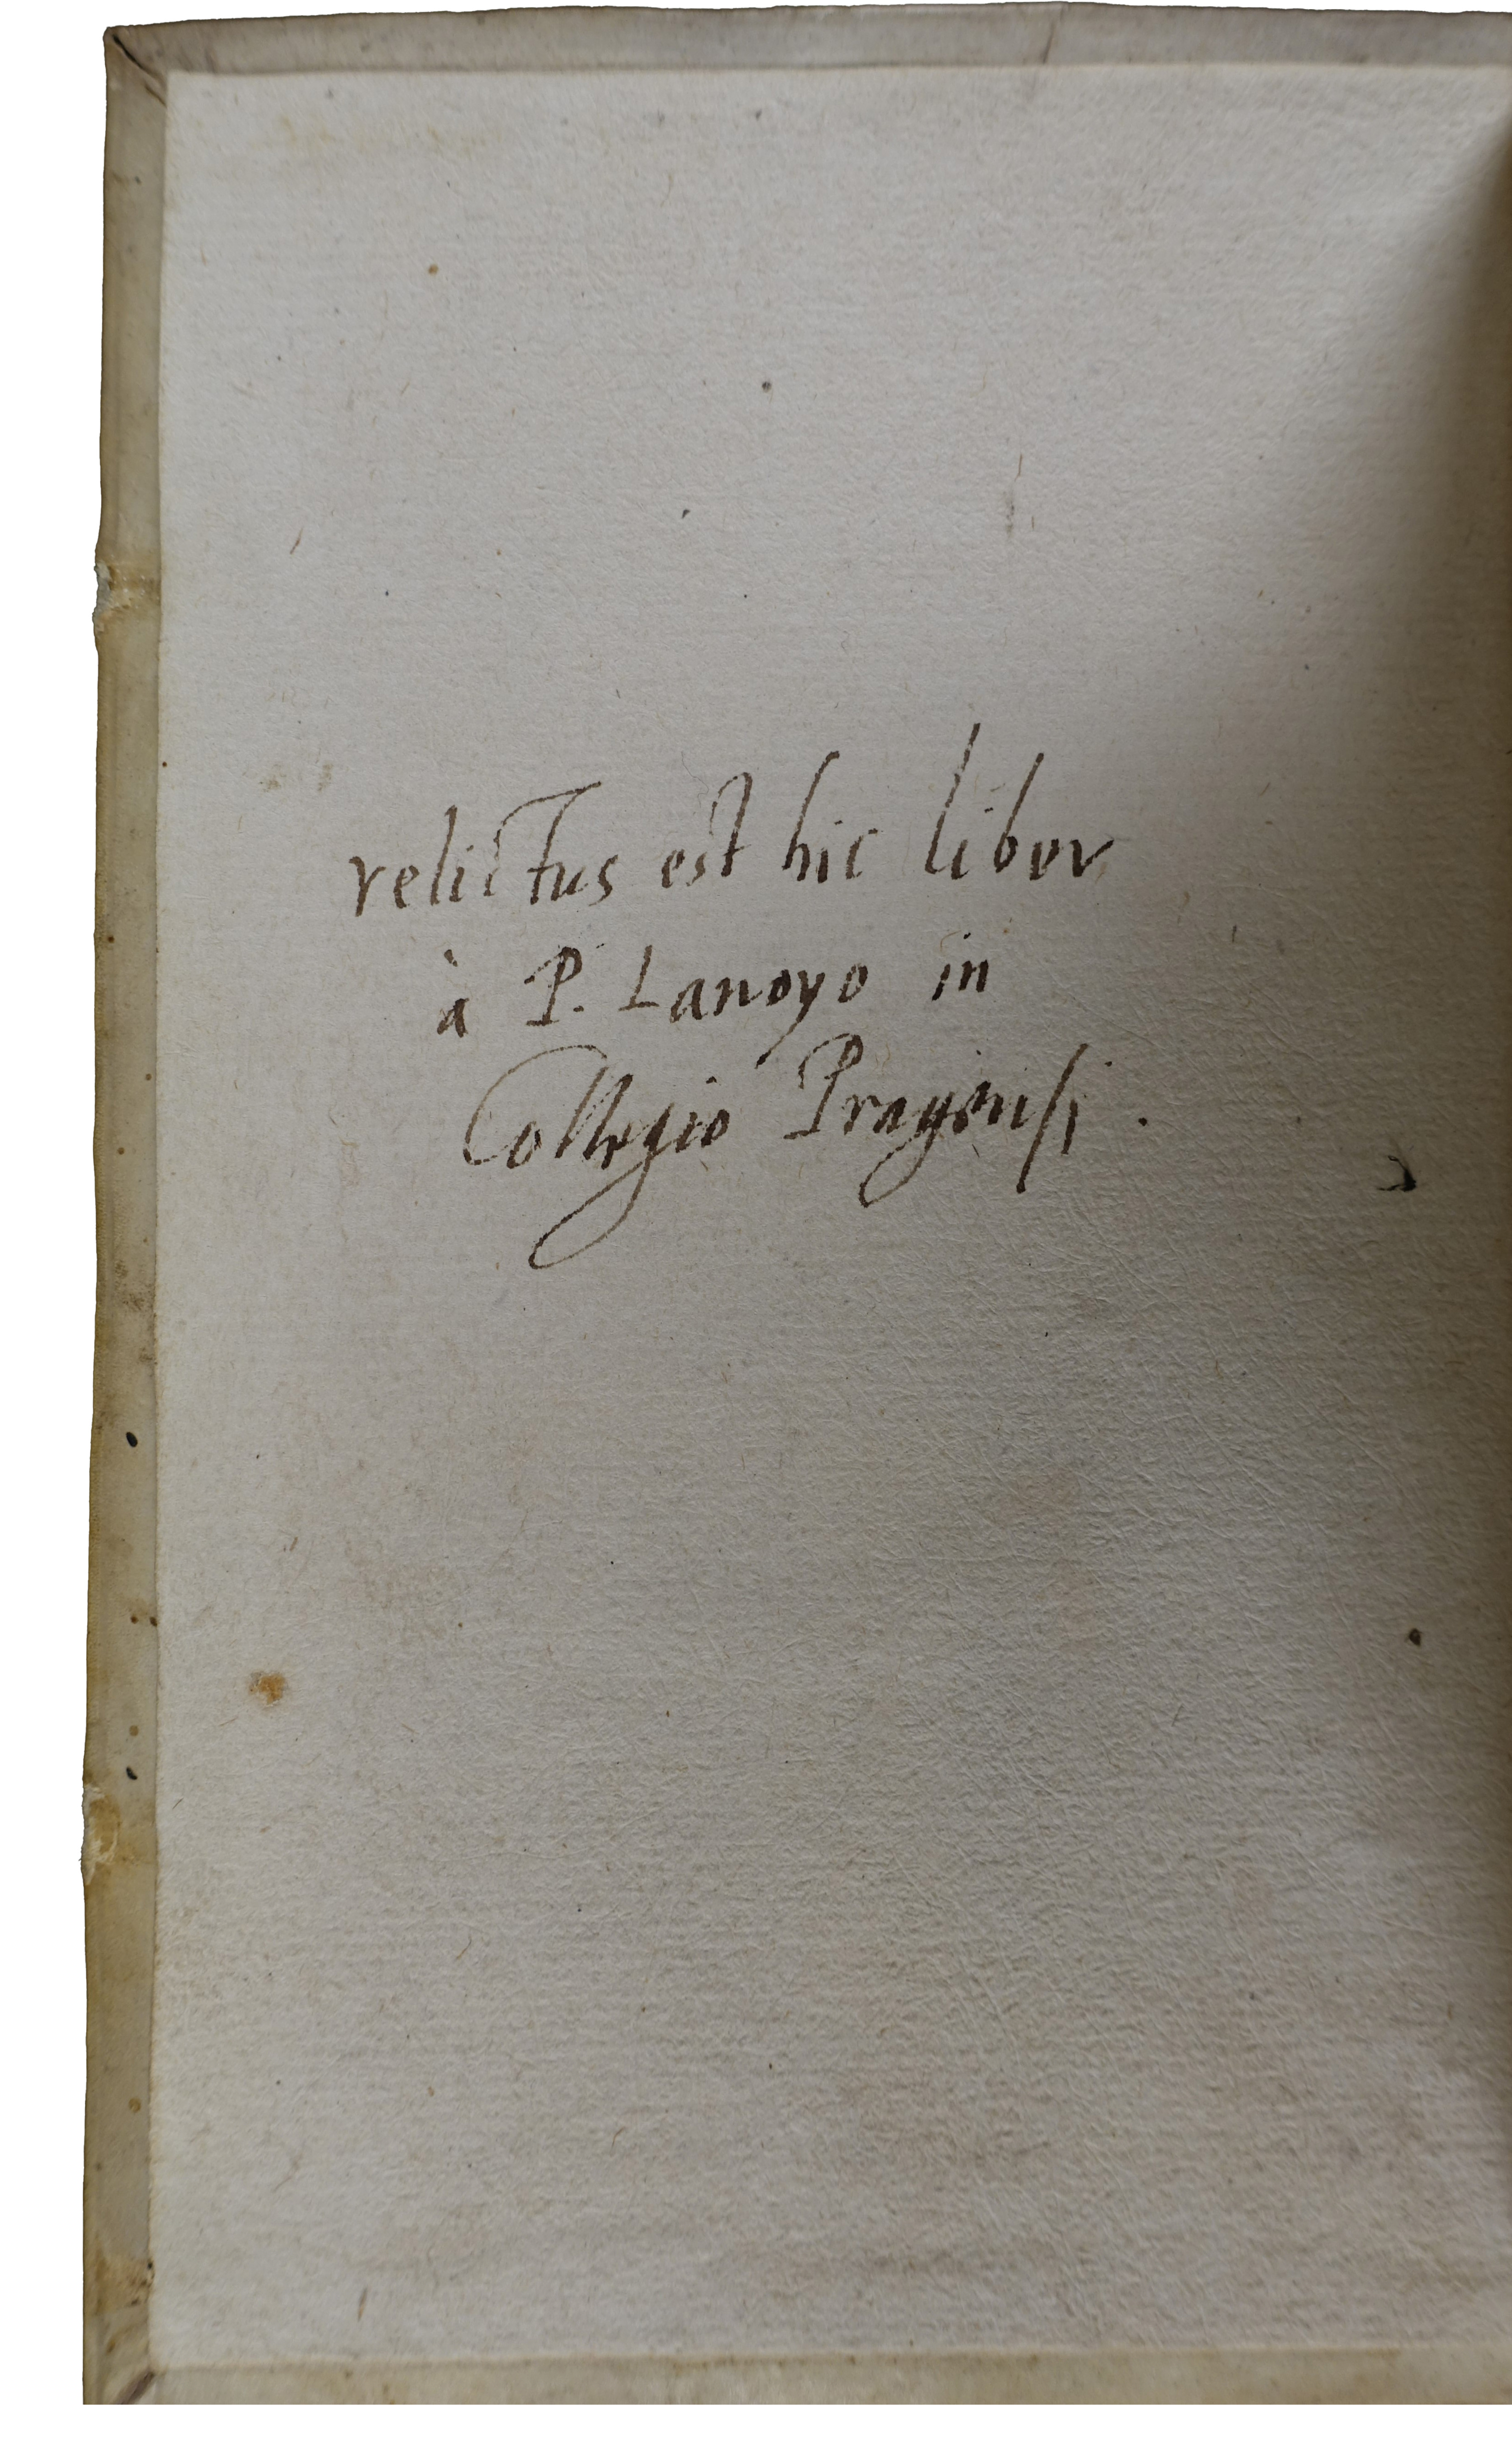 relictus est hic liber
à P. Lanoyo in
Collegio Pragensi.